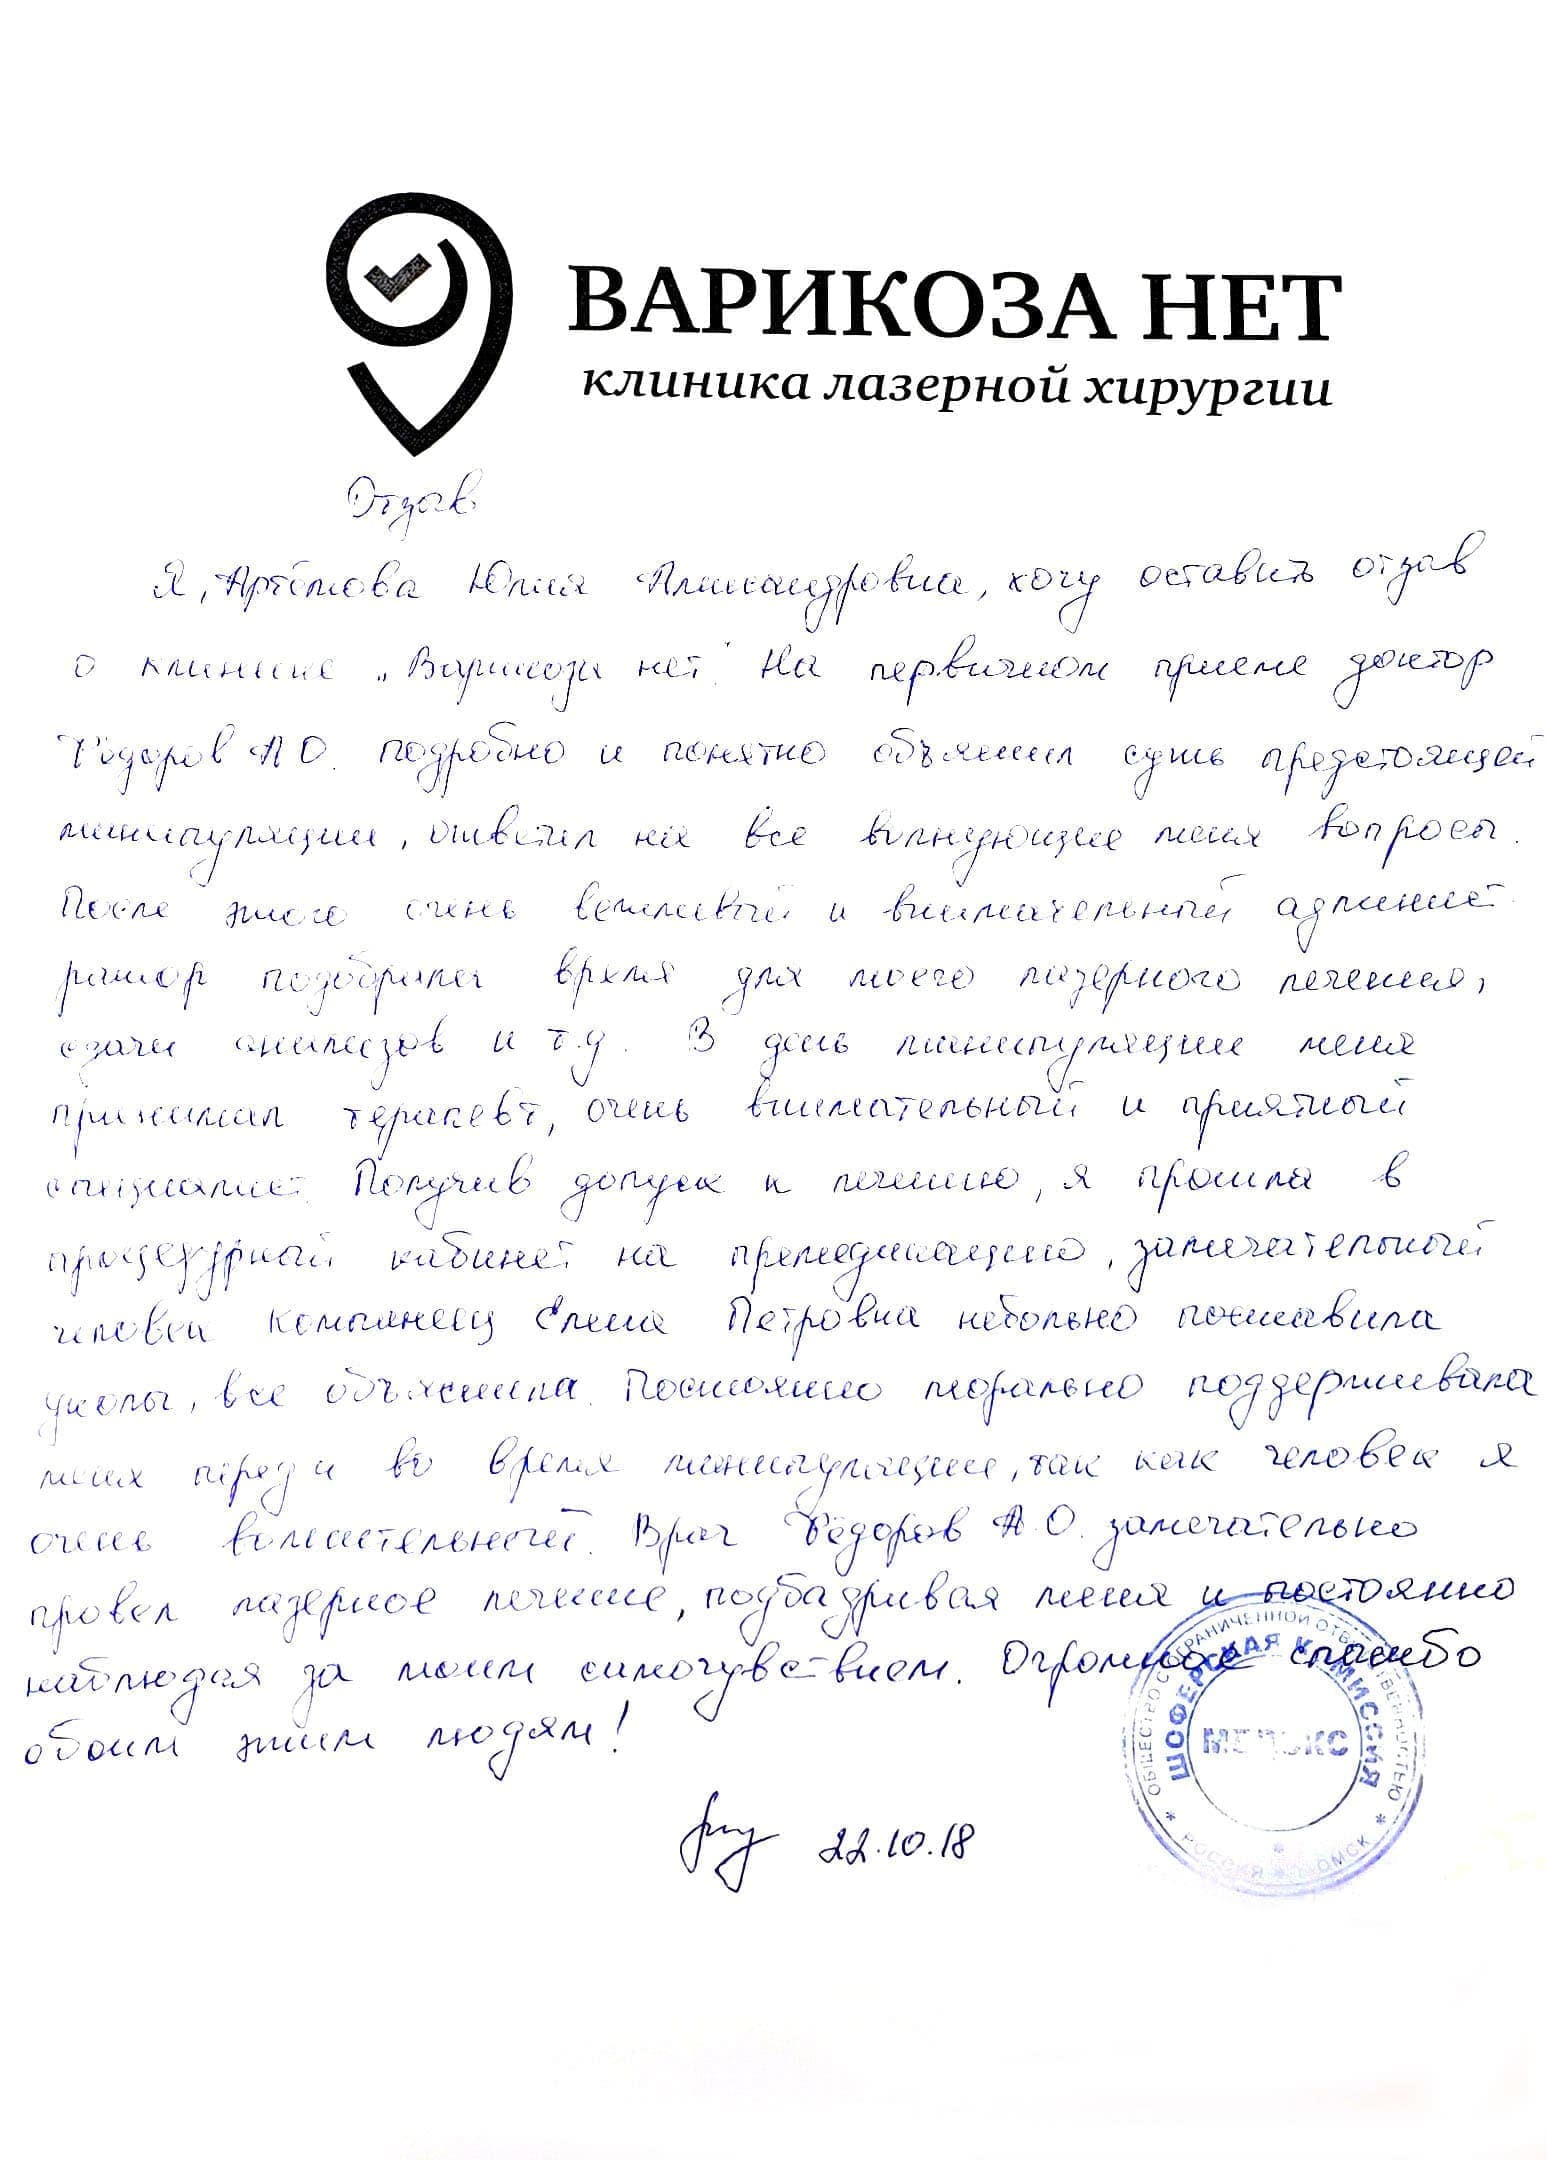 ВАРИКОЗА НЕТ
клиника лазерной хирургии
Отзыв
Я, Артёмова Юлия Александровна, хочу оставить отзыв
о клинике „Варикоза нет". На первичном приеме доктор
Фёдоров А.О. подробно и понятно объяснил суть предстоящей
манипуляции, ответил на все волнующие меня вопросы.
После этого очень вежливый и внимательный админист
ратор подобрала время для моего лазерного лечения,
сдачи анализов и т.д. В день манипуляции меня
принимал терапевт, очень внимательный и приятный
специалист. Получив допуск к лечению, я прошла в
процедурный кабинет на премедикацию, замечательный
человек Компанеец Елена Петровна небольно поставила
уколы, все объяснила. Постоянно морально поддерживала
меня перед и во время манипуляции, так как человек я
очень волнительный. Врач Фёдоров А.О. замечательно
провел лазерное лечение, подбадривая меня и постоянно
наблюдая за моим самочувствием. Огромное спасибо
обоим этим людям!
22.10.18
ОБЩЕСТВО С ОГРАНИЧЕННОЙ ОТВЕТСТВЕННОСТЬЮ
ШОФЕРСКАЯ КОМИССИЯ
РОССИЯ * ОМСК